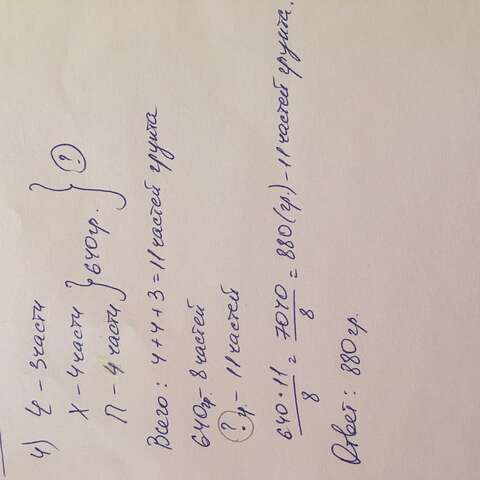 4) Ч – 3 части
Х – 4 части } 640 гр. } ?
П – 4 части
Всего: 4+4+3=11 частей грунта
640гр. – 8 частей
? гр. – 11 частей
640·11/8 = 7040/8 = 880(гр.) – 11 частей грунта.
Ответ: 880 гр.